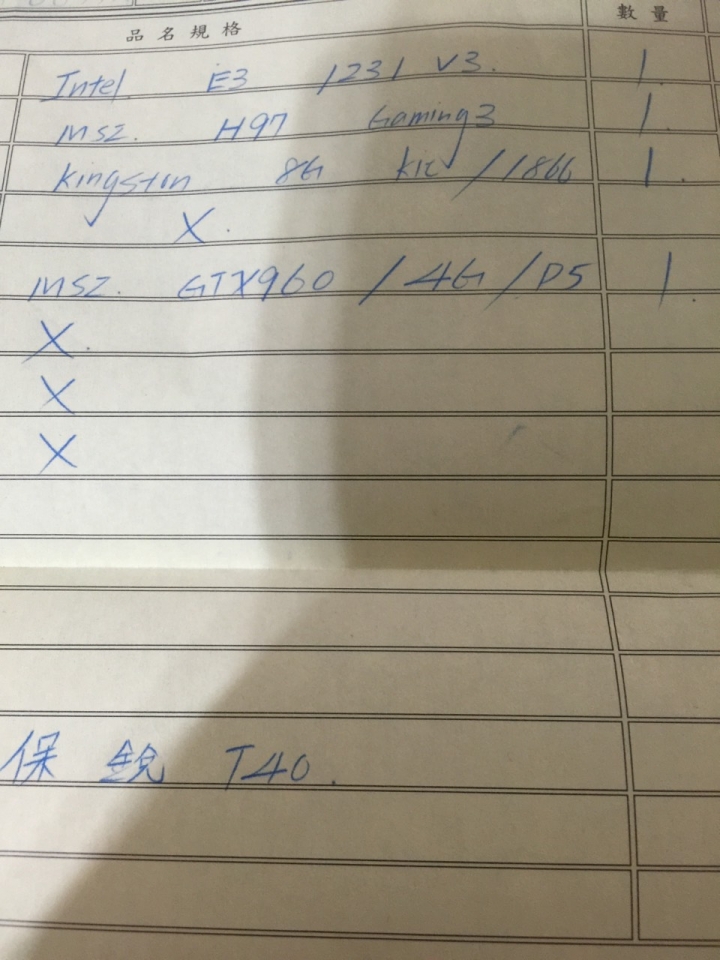 品名規格 數量
Intel E3 1231 V3. 1.
msz. H97 Gaming3 1.
kingston 8G kit / 1866 1.
X.
msz. GTX960 / 4G / D5 1.
X.
X
X
保銳 T40.